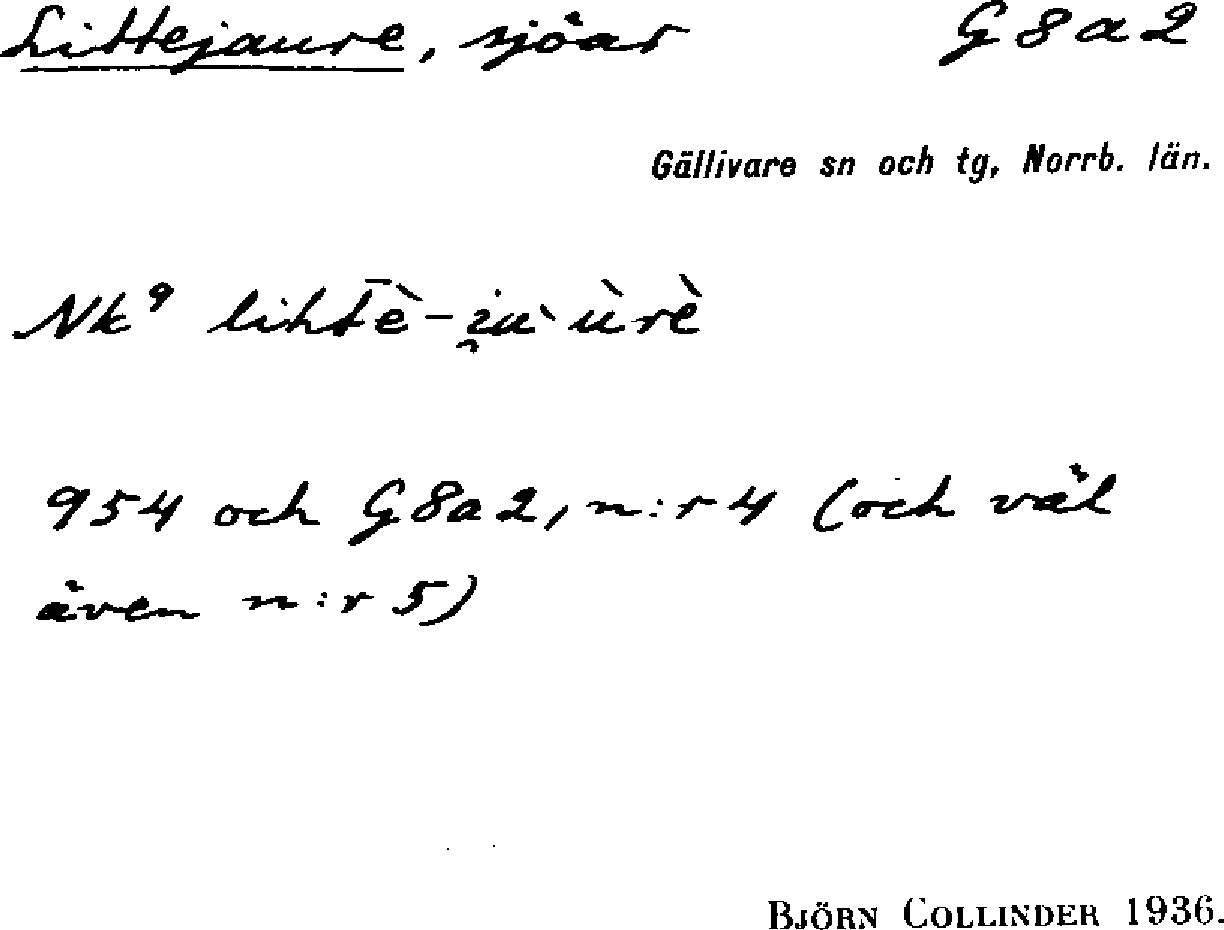 Littejaure, sjöar G8a2
Gällivare sn och tg, Norrb. län.
Nk⁹
954 och G8a2, n:r 4 (och väl
även n:r 5)
BJÖRN COLLINDER 1936.